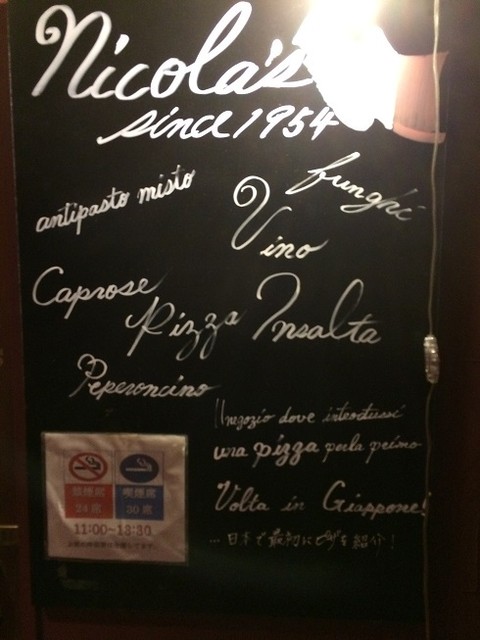 Nicola's
since 1954
antipasto misto
funghi
Vino
Caprose
Pizza
Insalta
Peperoncino
Il negozio dove
una pizza perla primo
Volta in Giappone!
... 日本で最初にピザを紹介!
禁煙席 喫煙席
24席 30席
11:00~13:30